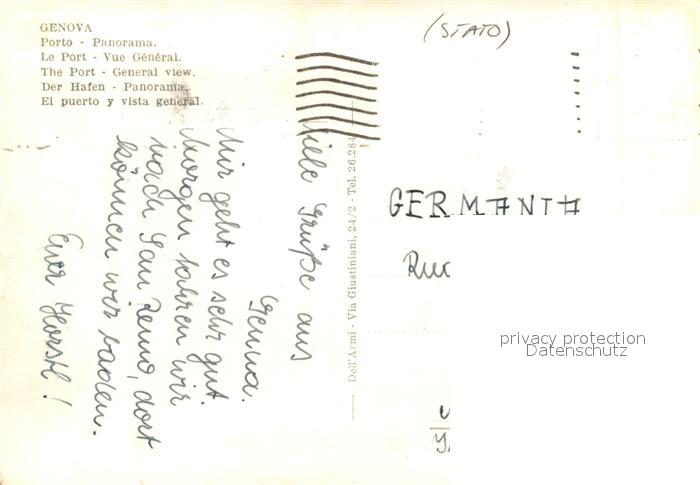 GENOVA
Porto - Panorama.
Le Port - Vue Général.
The Port - General view.
Der Hafen - Panorama.
El puerto y vista general.
(STATO)
Viele Grüße aus
Genua.
Mir geht es sehr gut.
Morgen fahren wir
nach San Remo, dort
können wir baden.
Euer Horstl!
Dell'Armi - Via Giustiniani, 24/2 - Tel. 26.284
GERMANIA
privacy protection
Datenschutz